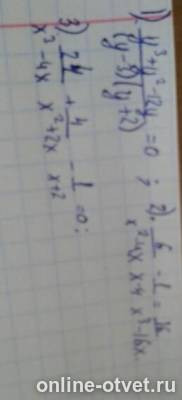 1). (y³+y²-12y)/((y-3)(y+2)) = 0 ; 2). 6/(x²-4x) - 1/(x-4) = /(x³-16x)
3) 24/(x³-4x) + 4/(x²+2x) - 1/(x+2) = 0 ;
online-otvet.ru